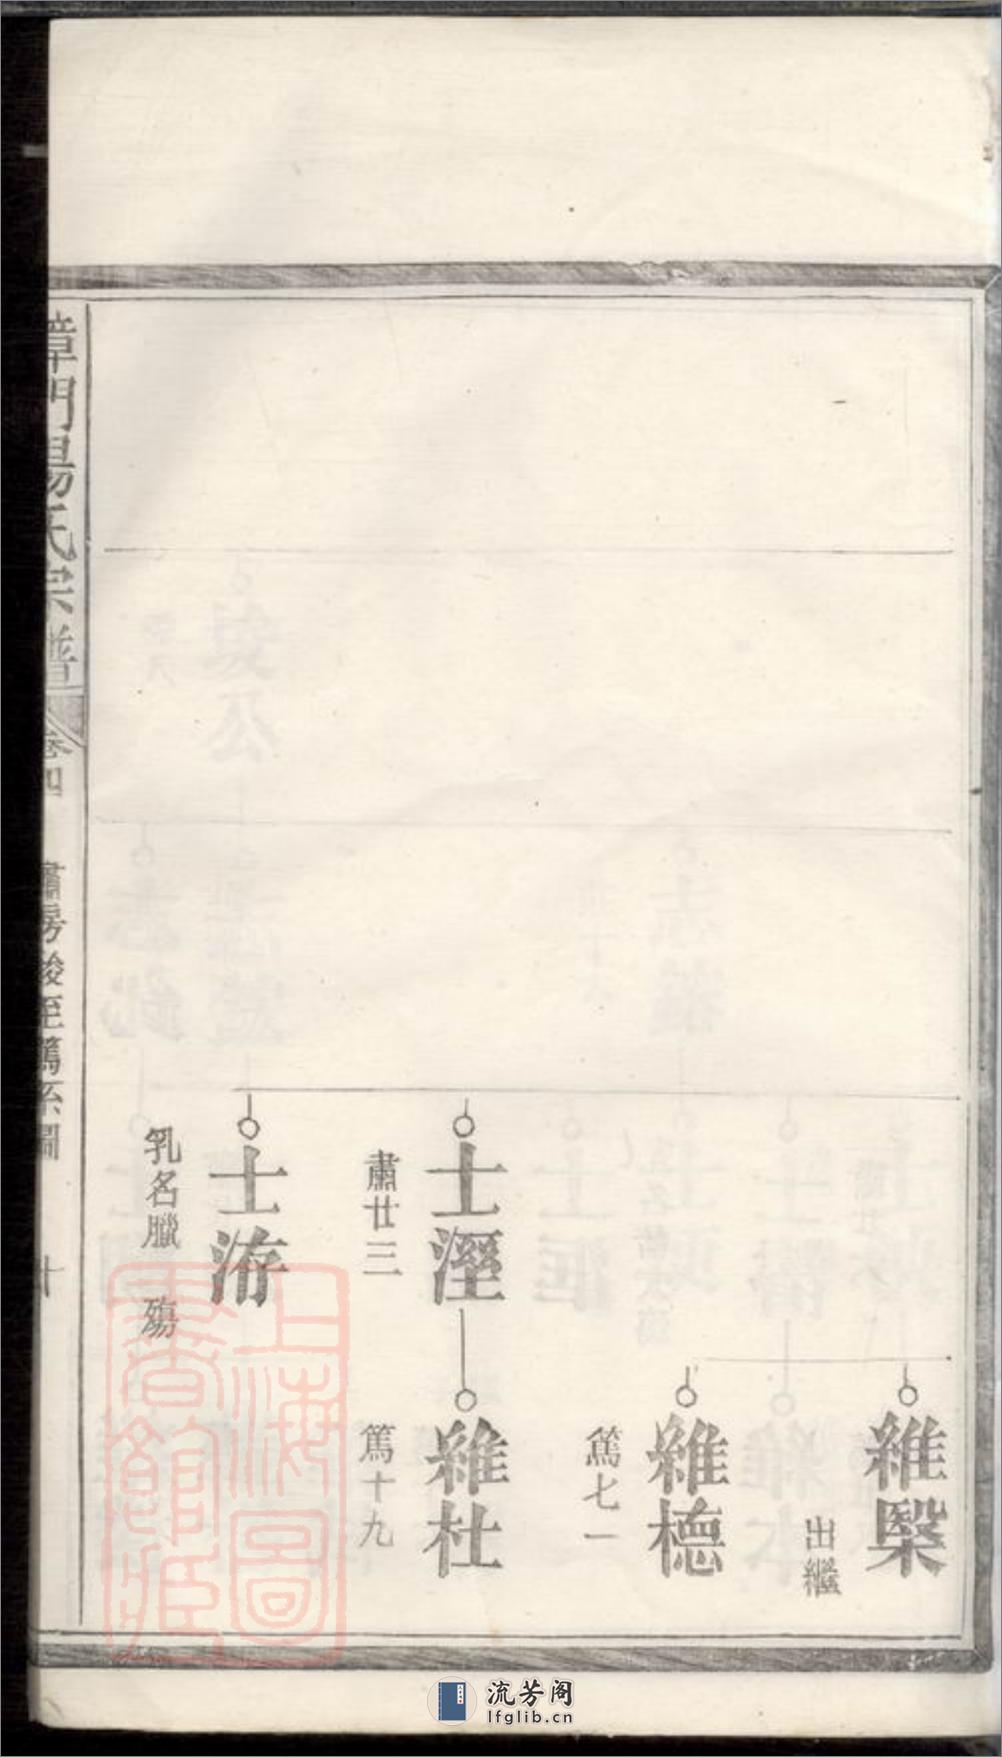 維槼
出繼
維橞
篤七一
士溼
肅廿三
維杜
篤十九
士洊
乳名臘 殤
章門楊氏宗譜
卷四
肅房後至篤系圖
十
上海圖書館藏
流芳阁
lfglib.cn